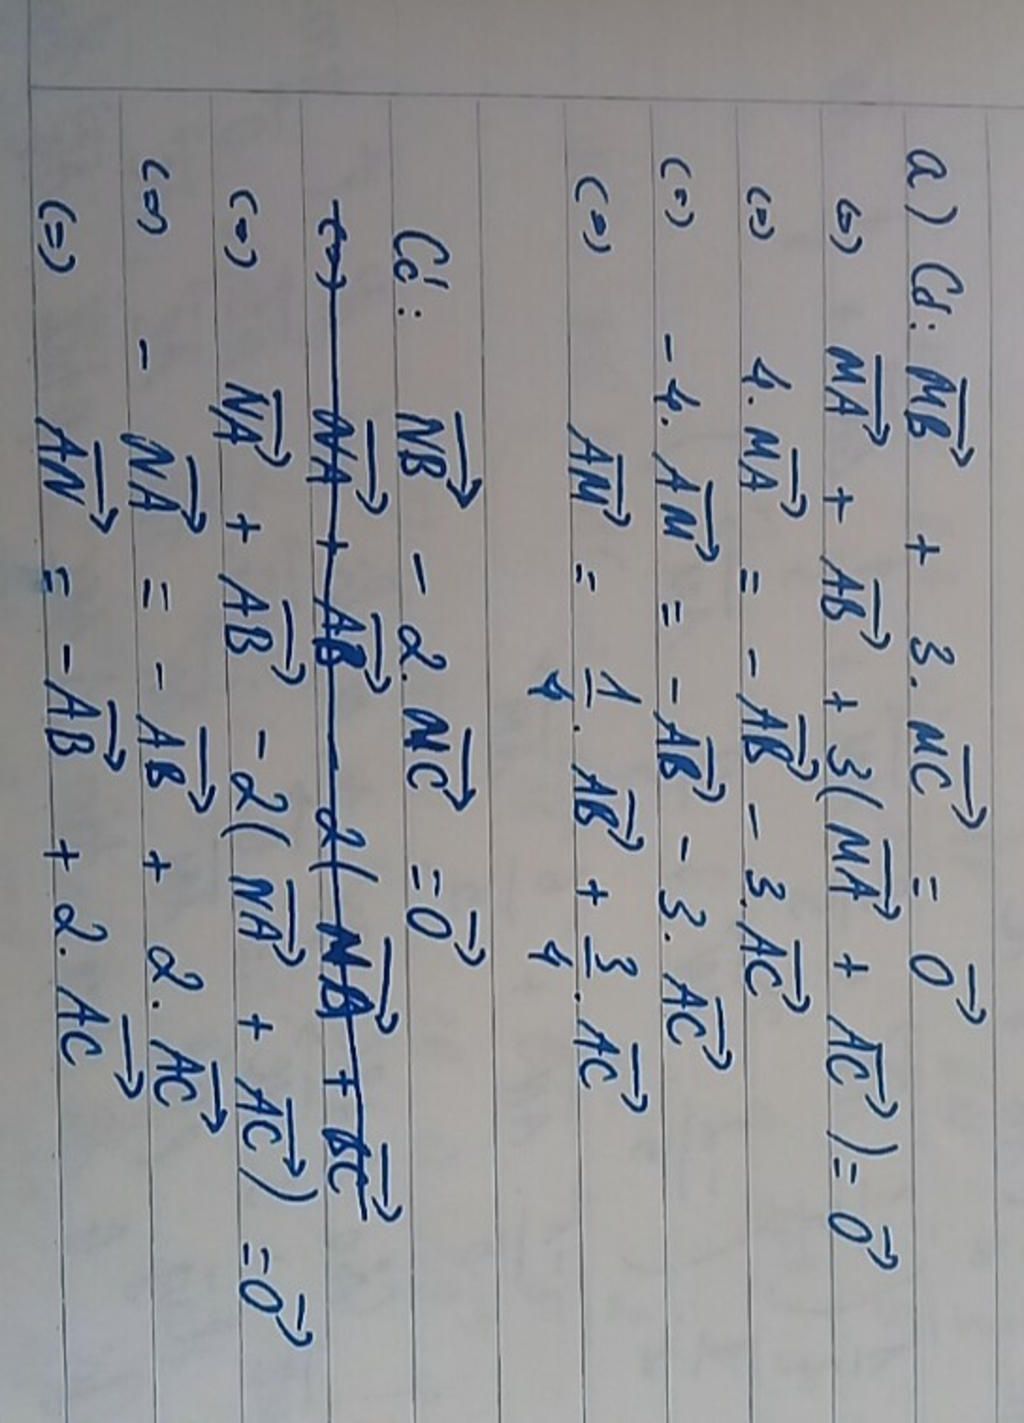 a) Có: $\overrightarrow{MB} + 3.\overrightarrow{MC} = \overrightarrow{0}$
(=) $\overrightarrow{MA} + \overrightarrow{AB} + 3(\overrightarrow{MA} + \overrightarrow{AC}) = \overrightarrow{0}$
(=) $4.\overrightarrow{MA} = -\overrightarrow{AB} - 3.\overrightarrow{AC}$
(=) $-4.\overrightarrow{AM} = -\overrightarrow{AB} - 3.\overrightarrow{AC}$
(=) $\overrightarrow{AM} = \frac{1}{4}.\overrightarrow{AB} + \frac{3}{4}.\overrightarrow{AC}$
Có: $\overrightarrow{NB} - 2.\overrightarrow{NC} = \overrightarrow{0}$
(=) $\overrightarrow{NA} + \overrightarrow{AB} - 2($ $+ \overrightarrow{BC}$
(=) $\overrightarrow{NA} + \overrightarrow{AB} - 2(\overrightarrow{NA} + \overrightarrow{AC}) = \overrightarrow{0}$
(=) $-\overrightarrow{NA} = -\overrightarrow{AB} + 2.\overrightarrow{AC}$
(=) $\overrightarrow{AN} = -\overrightarrow{AB} + 2.\overrightarrow{AC}$